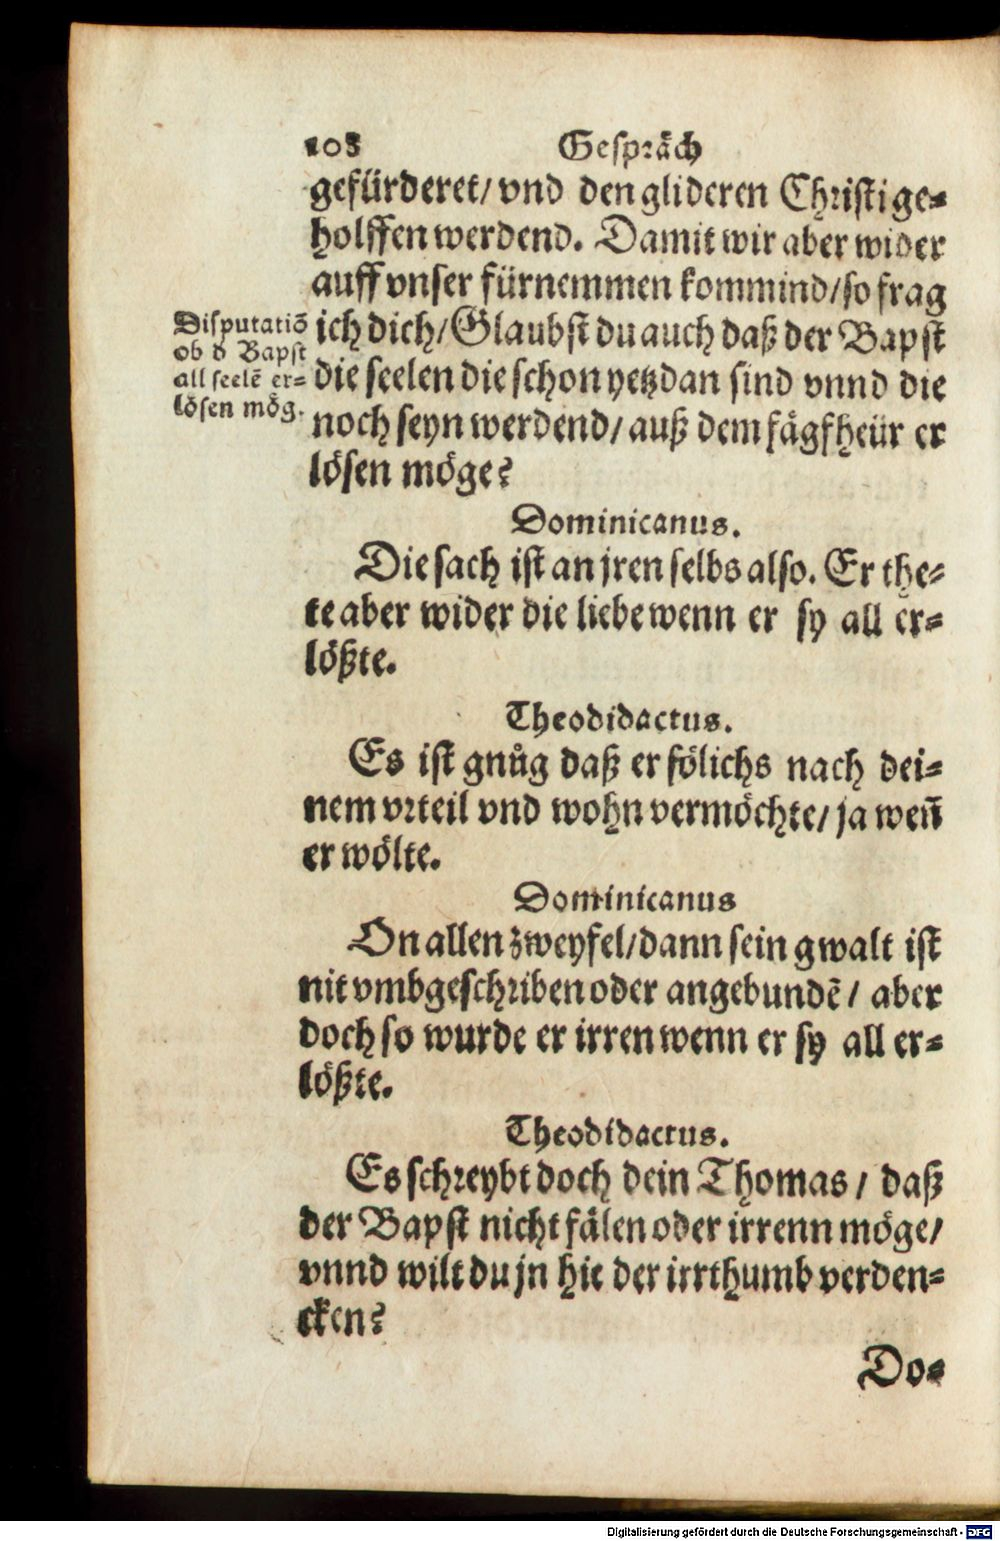 108 Gespräch
gefürderet/ vnd den glideren Christi ge-
holffen werdend. Damit wir aber wider
auff vnser fürnemmen kommind/ so frag
ich dich/ Glaubst du auch daß der Bapst
die seelen die schon yetzdan sind vnnd die
noch seyn werdend/ auß dem fägfheür er
lösen möge?
Disputatiō
ob d Bapst
all seelē er-
lösen mög.
Dominicanus.
Die sach ist an jren selbs also. Er the-
te aber wider die liebe wenn er sy all er-
lößte.
Theodidactus.
Es ist gnůg daß er sölichs nach dei-
nem vrteil vnd wohn vermöchte/ ja weñ
er wölte.
Dominicanus
On allen zweyfel/ dann sein gwalt ist
nit vmbgeschriben oder angebundē/ aber
doch so wurde er irren wenn er sy all er-
lößte.
Theodidactus.
Es schreybt doch dein Thomas/ daß
der Bapst nicht fälen oder irrenn möge/
vnnd wilt du jn hie der irrthumb verden-
cken?
Do-
Digitalisierung gefördert durch die Deutsche Forschungsgemeinschaft - DFG